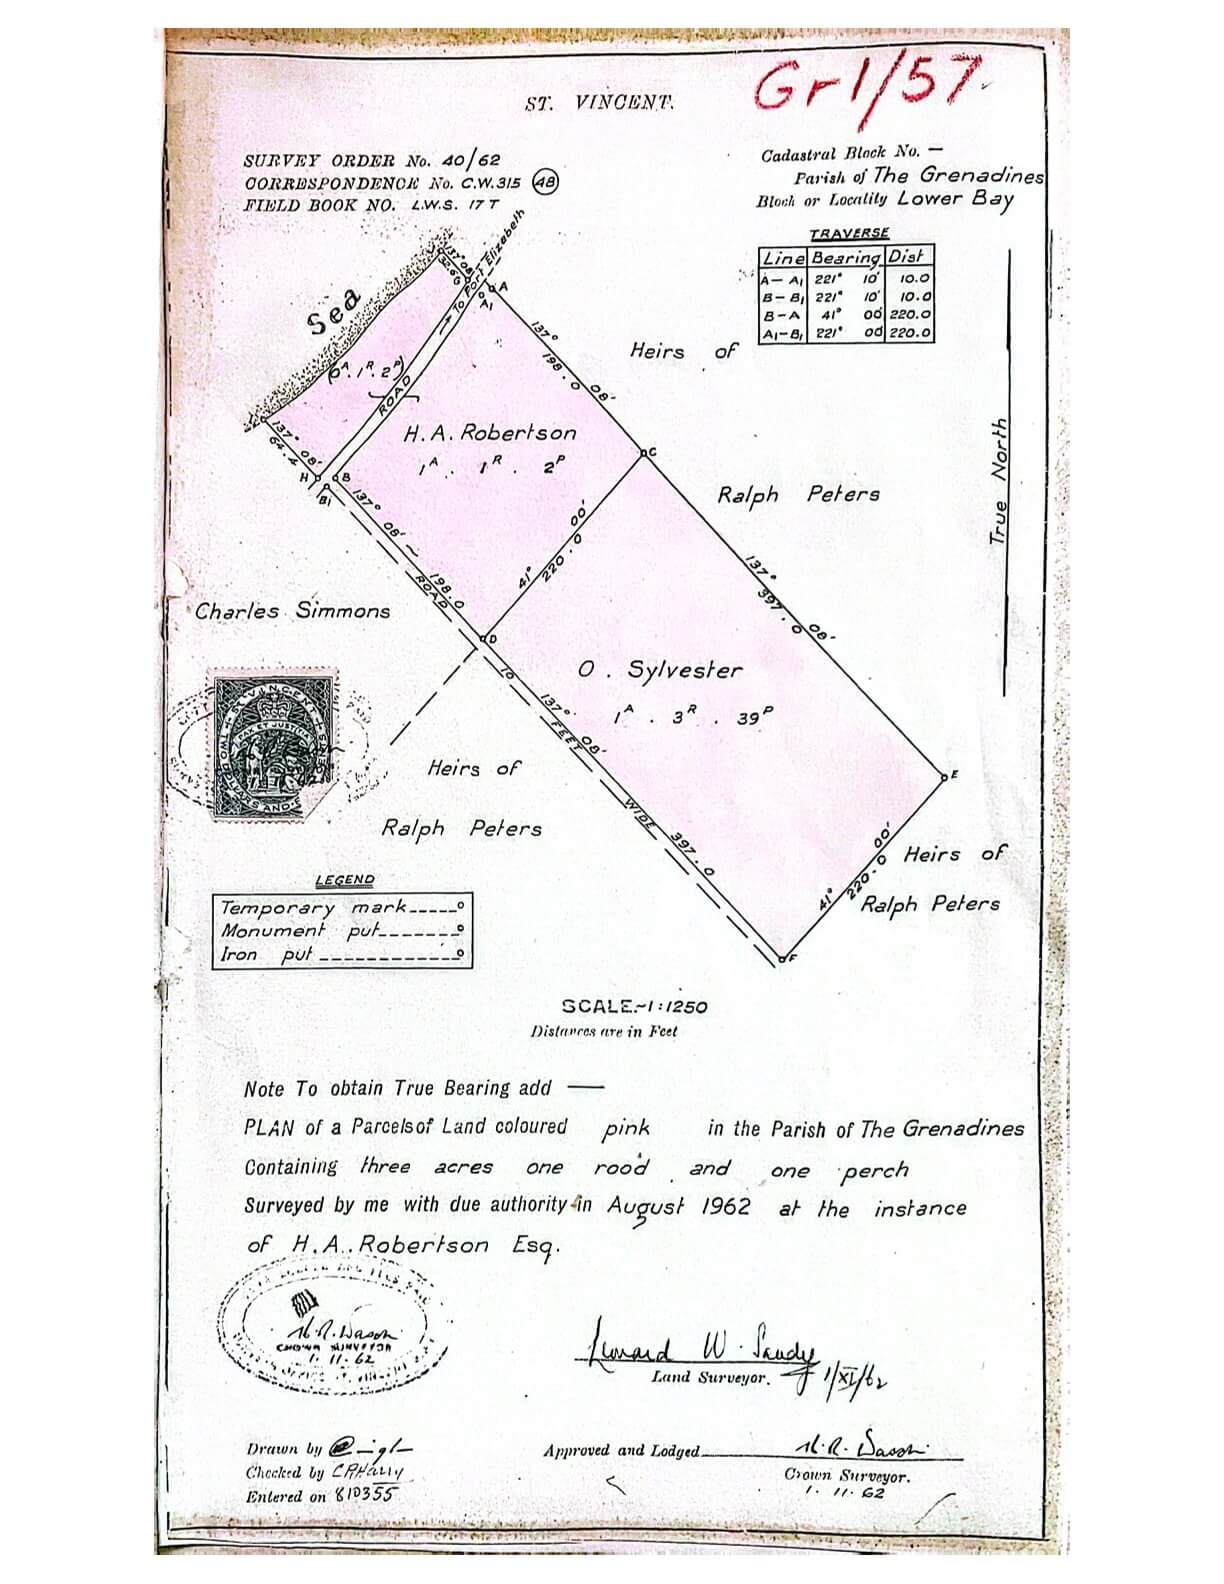 Gr1/57
ST. VINCENT.
SURVEY ORDER No. 40/62
CORRESPONDENCE No. C.W.315 48
FIELD BOOK NO. L.W.S. 17 T
Cadastral Block No. —
Parish of The Grenadines
Block or Locality Lower Bay
TRAVERSE
Line Bearing Dist
A—A1 221° 10' 10.0
B—B1 221° 10' 10.0
B—A 41° 00' 220.0
A1—B1 221° 00' 220.0
137° 08'
32.6
To Port Elizabeth
A
A1
Sea
137° 08'
198.0
Heirs of
Ralph Peters
(0A. 1R. 2P)
ROAD
H.A. Robertson
1A. 1R. 2P
C
137° 08'
64.4
H
B
B1
True North
137° 08'
198.0
ROAD
41° 00'
220.0
137° 08'
397.0
Charles Simmons
D
O. Sylvester
1A. 3R. 39P
10 FEET WIDE
137° 08'
397.0
ST. VINCENT
PAX ET JUSTITIA
Heirs of
Ralph Peters
E
41° 00'
220.0
Heirs of
Ralph Peters
F
LEGEND
Temporary mark_____o
Monument put_______o
Iron put ____________o
SCALE:-1:1250
Distances are in Feet
Note To obtain True Bearing add —
PLAN of a Parcels of Land coloured pink in the Parish of The Grenadines
Containing three acres one rood and one perch
Surveyed by me with due authority in August 1962 at the instance
of H.A. Robertson Esq.
CROWN SURVEYOR
1.11.62
Leonard W. Sandy
Land Surveyor. 1/XI/62
Drawn by
Checked by
Entered on 810355
Approved and Lodged
Crown Surveyor.
1.11.62